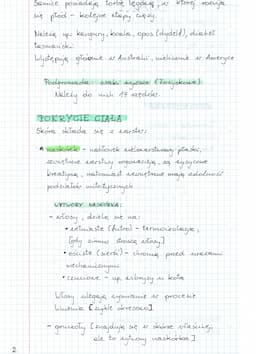 Samice posiadają torbę lęgową, w której rozwija
się płód - kolejne etapy ciąży.
Należą np. kangury, koala, opos (dydelf), diabeł
tasmański.
Występują głównie w Australii, nieliczne w Ameryce
Podgromada: ssaki wyższe (łożyskowe).
Należy do nich 17 rzędów.
POKRYCIE CIAŁA
Skóra składa się z warstw:
naskórek - nabłonek wielowarstwowy płaski,
zewnętrzne warstwy rogowacieją, są wysycone
kreatyną, natomiast wewnętrzne mają zdolność
podziałów mitotycznych
WYTWORY NASKÓRKA:
- włosy, dzielą się na:
• wełniste (futro) - termoizolacja,
[gdy zimno stroszą włosy]
• ościste (sierść) - chronią przed urazami
mechanicznymi
• czuciowe - np. wibrysy u kota
Włosy ulegają wymianie w procesie
linienia [zwykle okresowo].
- gruczoły [znajdują się w skórze właściwej,
ale to wytwory naskórka]
2